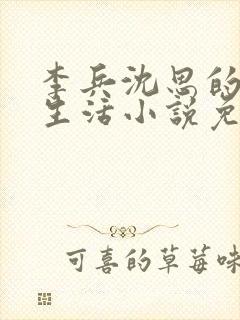 李兵沈思的
生活小说免
可喜的草莓味